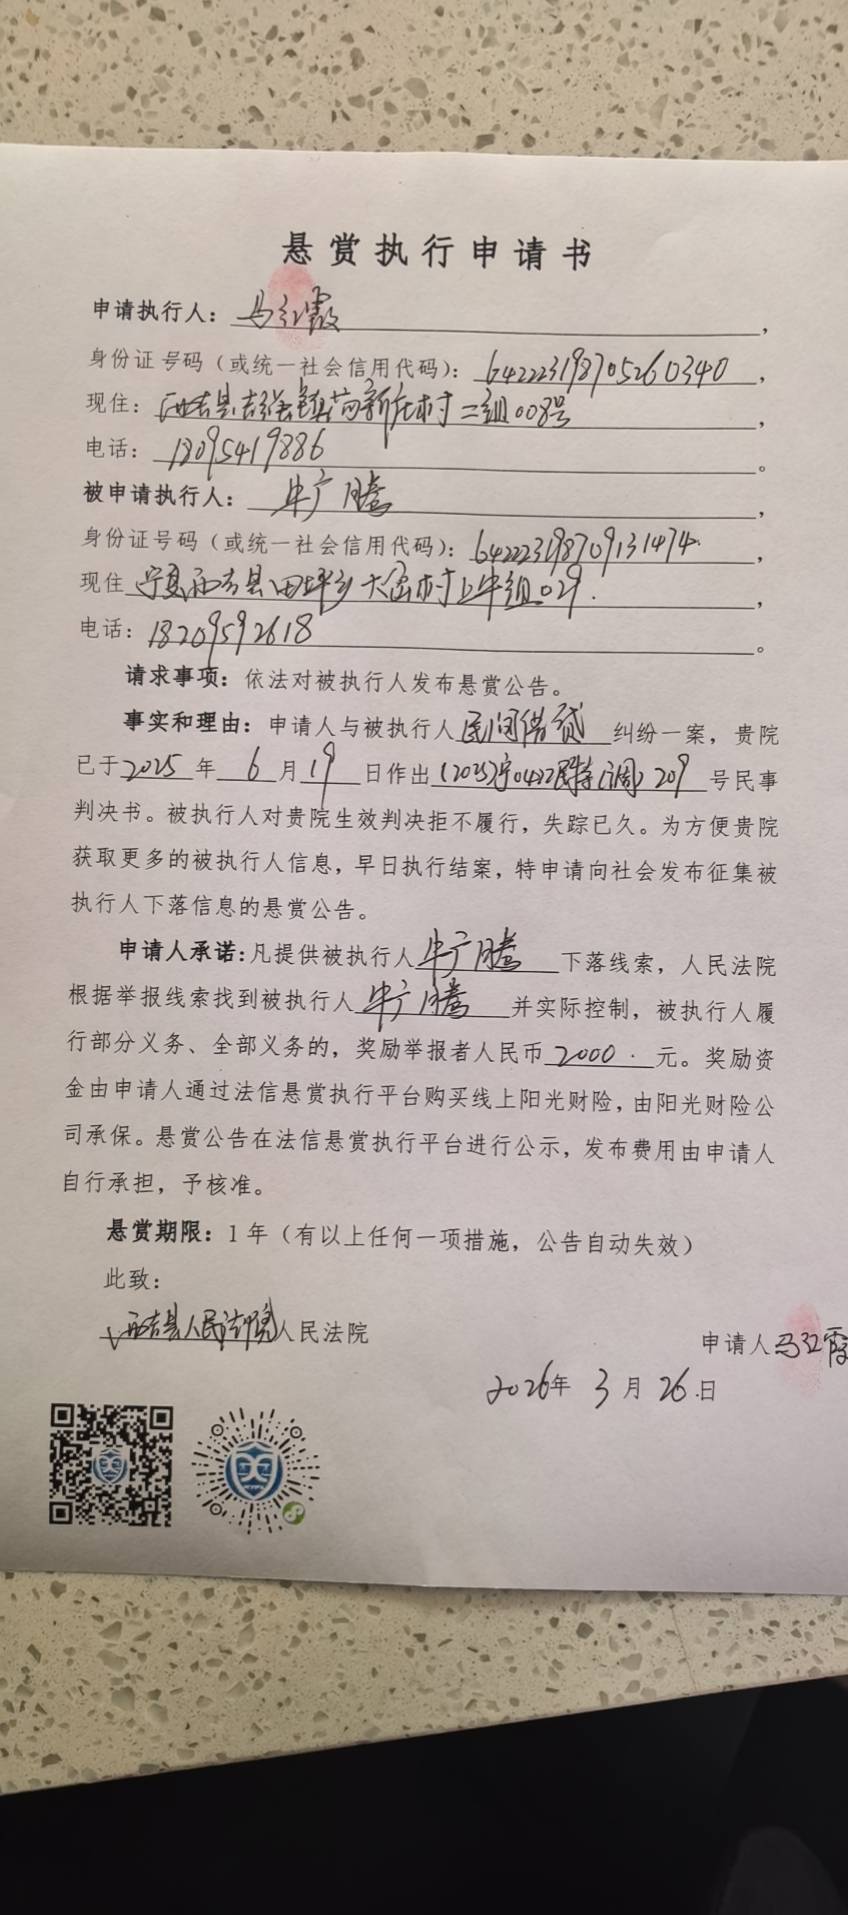 悬赏执行申请书
申请执行人：马红霞，
身份证号码（或统一社会信用代码）：642223198705260340，
现住：西吉县吉强镇芍新庄村二组008号，
电话：18095419886。
被申请执行人：牛广腾，
身份证号码（或统一社会信用代码）：642223198709131474，
现住 宁夏西吉县田坪乡大岔村上牛组029.，
电话：18209592618。
请求事项：依法对被执行人发布悬赏公告。
事实和理由：申请人与被执行人民间借贷纠纷一案，贵院
已于2025年6月19日作出(2025)宁0422民特(调)209号民事
判决书。被执行人对贵院生效判决拒不履行，失踪已久。为方便贵院
获取更多的被执行人信息，早日执行结案，特申请向社会发布征集被
执行人下落信息的悬赏公告。
申请人承诺：凡提供被执行人牛广腾下落线索，人民法院
根据举报线索找到被执行人牛广腾并实际控制，被执行人履
行部分义务、全部义务的，奖励举报者人民币2000.元。奖励资
金由申请人通过法信悬赏执行平台购买线上阳光财险，由阳光财险公
司承保。悬赏公告在法信悬赏执行平台进行公示，发布费用由申请人
自行承担，予核准。
悬赏期限：1年（有以上任何一项措施，公告自动失效）
此致：
西吉县人民法院人民法院
申请人马红霞
2026年3月26.日